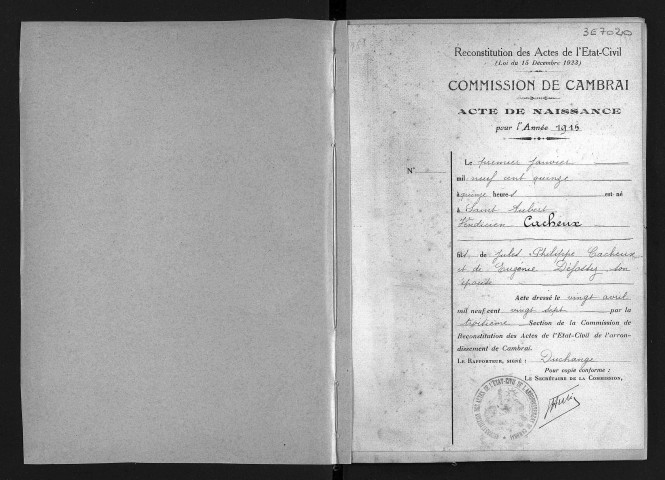 3E7020
Reconstitution des Actes de l'Etat-Civil
(Loi du 15 Décembre 1923)
COMMISSION DE CAMBRAI
ACTE DE NAISSANCE
pour l'Année 1915
N°
Le premier janvier
mil neuf cent quinze
à quinze heures est né
à Saint Aubert
Vindicien Cacheux
fils de Jules Philippe Cacheux
et de Eugénie Défossez son
épouse
Acte dressé le vingt avril
mil neuf cent vingt sept par la
troisième Section de la Commission de
Reconstitution des Actes de l'Etat-Civil de l'arron-
dissement de Cambrai.
Le Rapporteur, signé : Duchange
Pour copie conforme :
Le Secrétaire de la Commission,